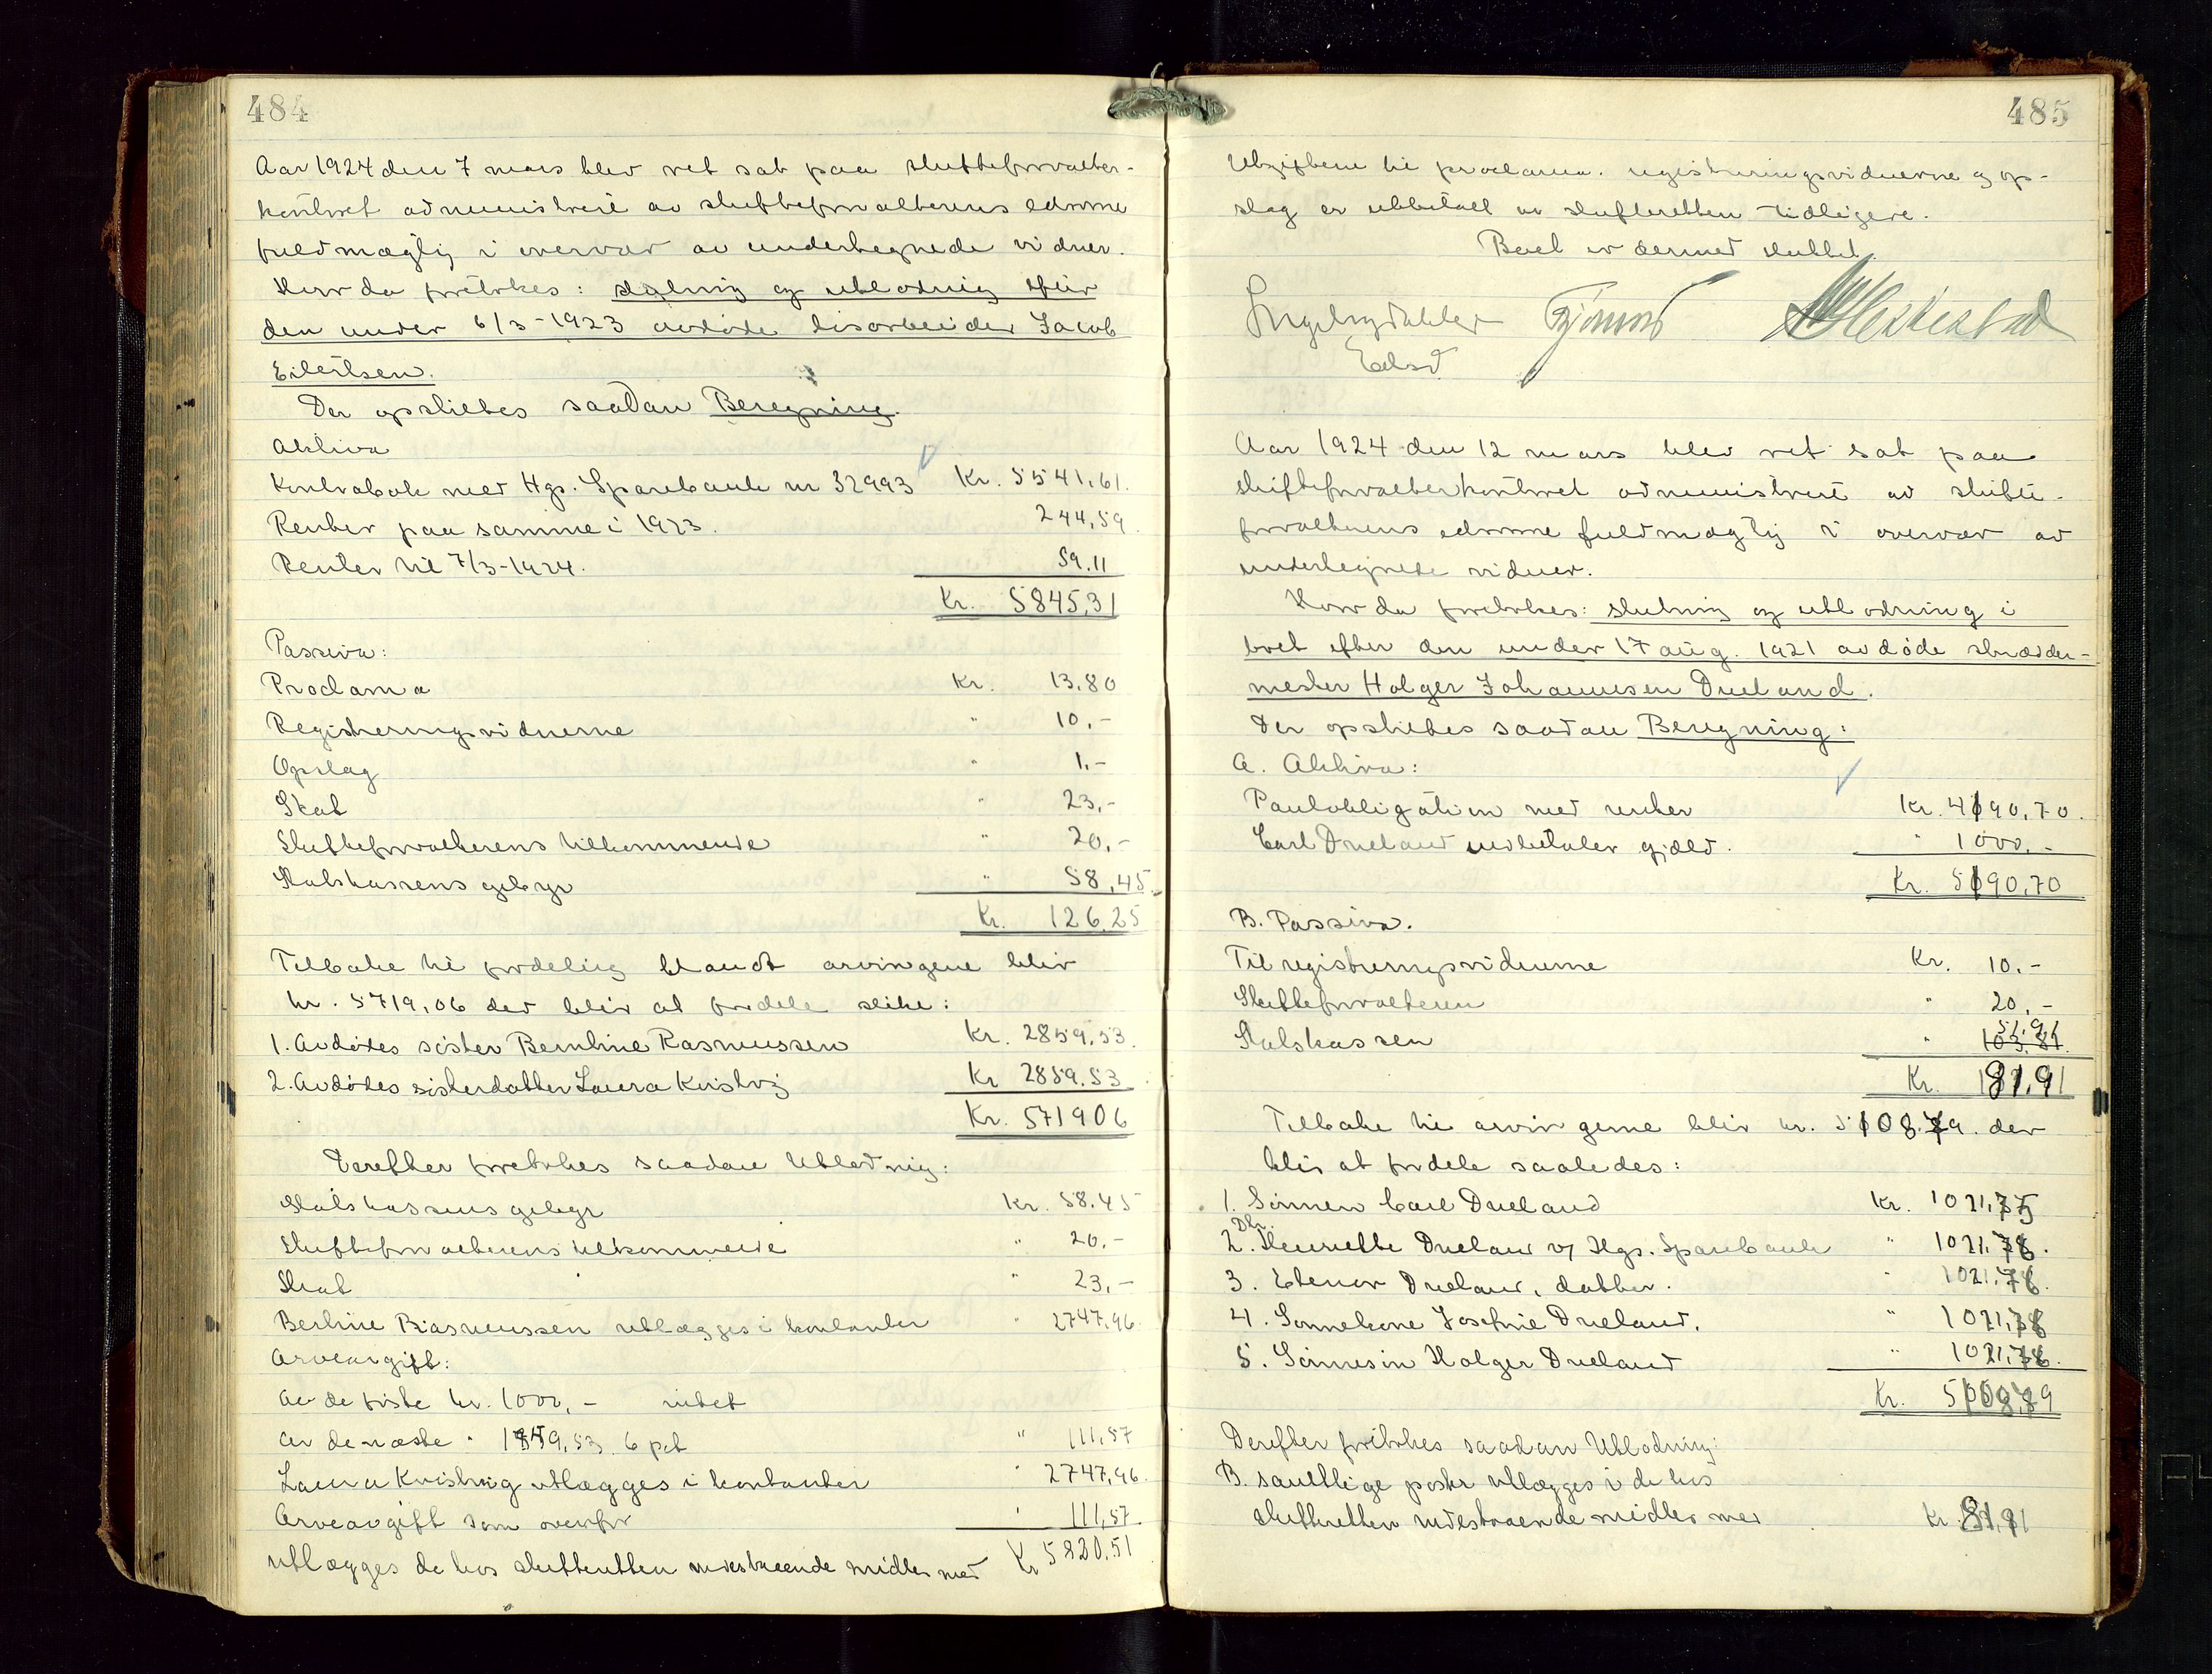 484
Aar 1924 den 7 mars blev ret sat paa skifteforvalter-
kontoret administreret av skifteforvalterens edsvorne
fuldmægtig i overvær av undertegnede vidner.
Hvor da foretokes: slutning og utlodning efter
den under 6/3-1923 avdøde løsarbeider Jacob
Eilertsen.
Der opstilles saadan Beregning.
Aktiva
Kontrabok med Hgs. Sparebank nr 32993 Kr. 5541,61.
Renter paa samme i 1923. 244,59.
Renter til 7/3-1924. 59.11
Kr. 5845,31
Passiva:
Proclama Kr. 13.80
Registreringsvidnerne " 10.-
Opslag " 1.-
Skat " 23,-
Skifteforvalterens tilkommende " 20,-
Statskassens gebyr " 58,45.
Kr. 126.25
Tilbake til fordeling blandt arvingene blir
kr. 5719,06 der blir at fordele slik:
1. Avdødes søster Berntine Rasmussen Kr. 2859,53.
2. Avdødes søsterdatter Laura Kvistvig Kr 2859.53
Kr. 571906
Derefter foretokes saadan Utlodning:
Statskassens gebyr Kr. 58.45
Skifteforvalterens tilkommende " 20,-
Skat " 23,-
Bertine Rasmussen utlægges i kontanter " 2747,96.
Arveavgift:
Av de første kr. 1000,- intet
Av de næste " 1859,53. 6 pct " 111,57
Laura Kvistvig utlægges i kontanter " 2747,96.
Arveavgift som ovenfor " 111,57.
utlægges de hos skifteretten indestaaende midler med Kr 5820.51
485
Utgiftene til proclama. registreringsvidnerne og op-
slag er utbetalt av skifteretten tidligere.
Boet er dermed sluttet.
Edsv.
Aar 1924 den 12 mars blev ret sat paa
skifteforvalterkontoret administreret av skifte-
forvalterens edsvorne fuldmægtig i overvær av
undertegnede vidner.
Hvor da foretokes: slutning og utlodning i
boet efter den under 17 aug. 1921 avdøde skrædder-
mester Holger Johannesen Dueland.
Der opstilles saadan Beregning:
A. Aktiva:
Pantobligation med renter Kr. 4190,70.
Carl Dueland indbetaler gjæld. " 1000.-
Kr. 5190,70
B. Passiva.
Til registreringsvidnerne Kr. 10.-
Skifteforvalteren " 20,-
Statskassen " 103,81 51,91
Kr. 81,91
Tilbake til arvingerne blir kr. 5108.79. der
blir at fordele saaledes:
1. Sønnen Carl Dueland Kr. 1021,75
2. Dtr. Henriette Dueland v/ Hgs. Sparebank " 1021.76.
3. Elenor Dueland, datter. " 1021,76.
4. Sønnekone Josefine Dueland. " 1021,76
5. Sønnesøn Holger Dueland " 1021,76.
Kr. 5108,79
Derefter foretokes saadan Utlodning:
B. samtlige poster utlægges i de hos
skifteretten indestaaende midler med Kr. 81,91